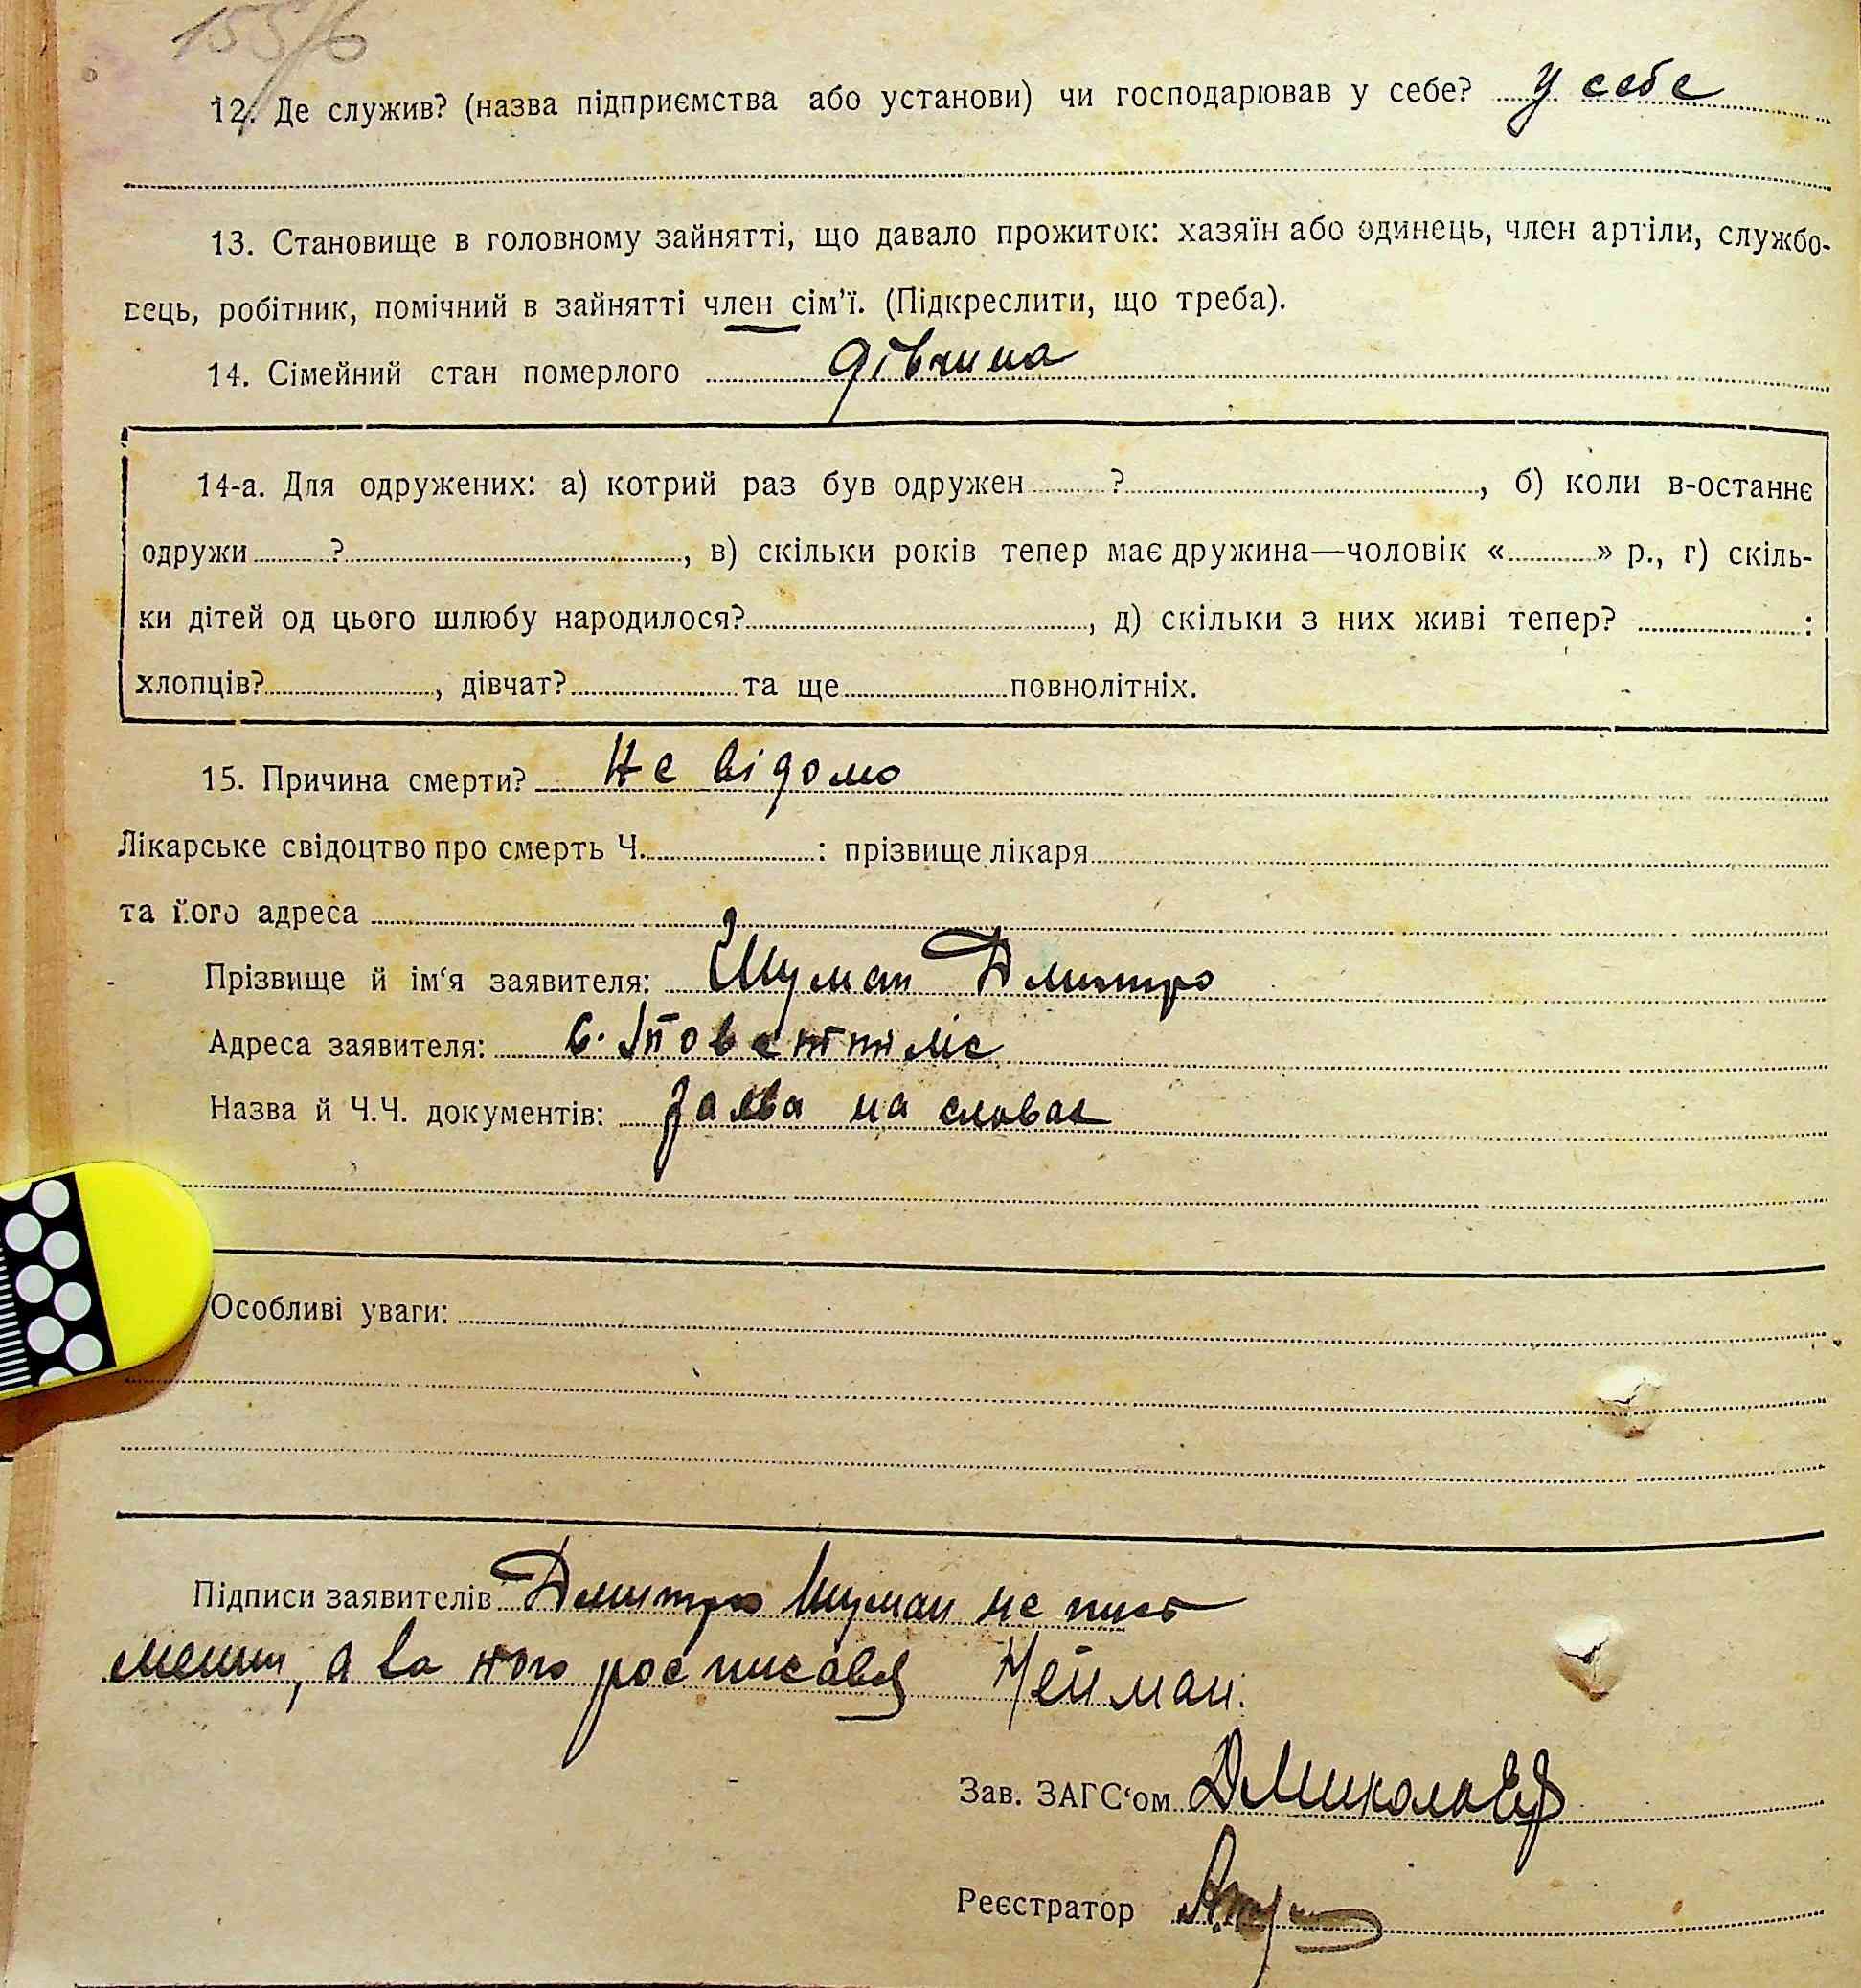 155/6
12. Де служив? (назва підприємства або установи) чи господарював у себе? у себе
13. Становище в головному зайнятті, що давало прожиток: хазяїн або одинець, член артіли, службо-
вець, робітник, помічний в зайнятті член сім'ї. (Підкреслити, що треба).
14. Сімейний стан померлого дівчина
14-а. Для одружених: а) котрий раз був одружен ? , б) коли в-останнє
одружи ? , в) скільки років тепер має дружина—чоловік « » р., г) скіль-
ки дітей од цього шлюбу народилося? , д) скільки з них живі тепер? :
хлопців? , дівчат? та ще повнолітніх.
15. Причина смерти? Не відомо
Лікарське свідоцтво про смерть Ч. : прізвище лікаря
та його адреса
Прізвище й ім'я заявителя: Шуман Дмитро
Адреса заявителя: с.
Назва й Ч.Ч. документів: Заява на словах
Особливі уваги:
Підписи заявителів Дмитро Шуман не пись
менни, а за його росписався Нейман.
Зав. ЗАГС'ом ДМиколаєв
Реєстратор